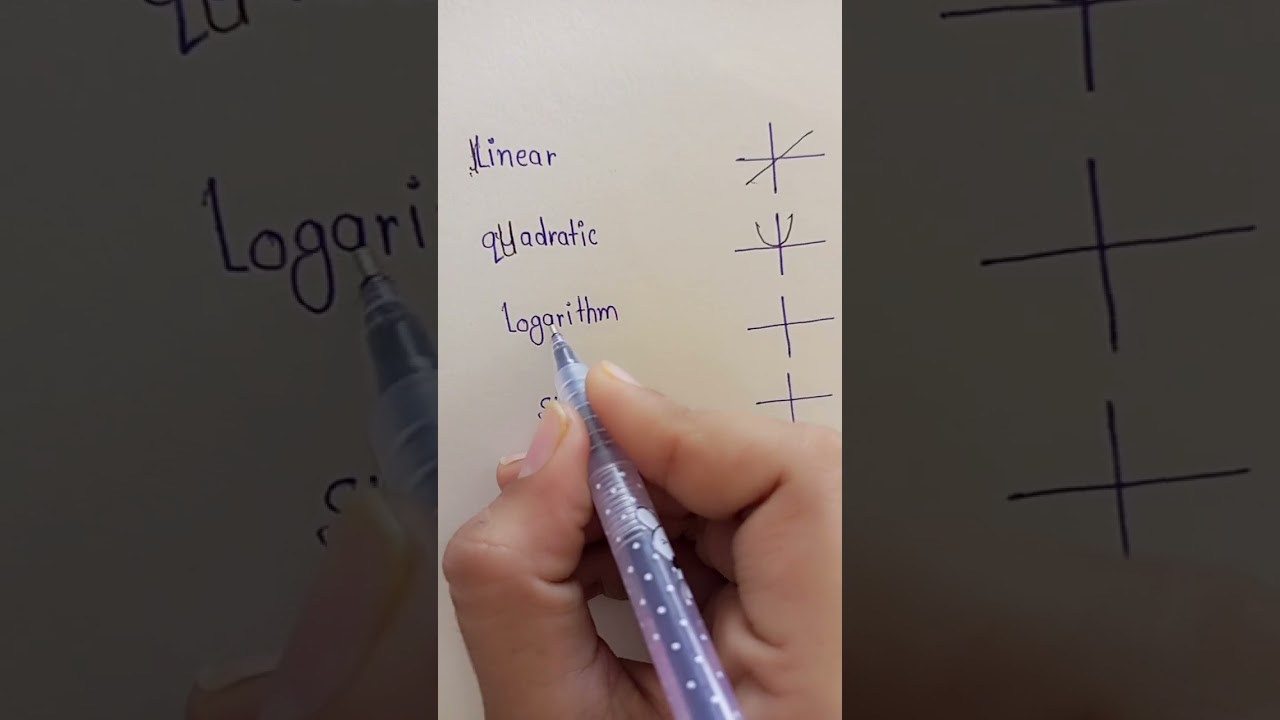 Linear
quadratic
Logarithm